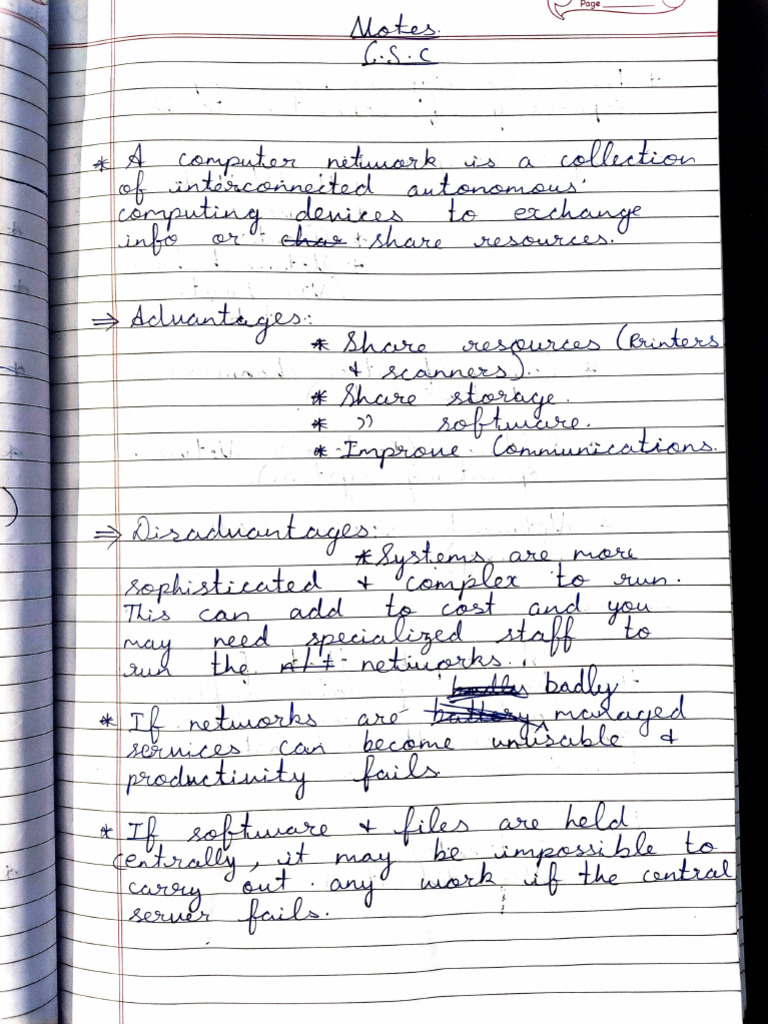 Page
Notes.
C.S.C
* A computer network is a collection
of interconnected autonomous
computing devices to exchange
info or char share resources.
⇒ Advantages:
* Share resources (Printers
& scanners).
* Share storage.
* " software.
* Improve Communications.
⇒ Disadvantages:
* Systems are more
sophisticated & complex to run.
This can add to cost and you
may need specialized staff to
run the networks.
badly
* If networks are managed
services can become unusable &
productivity fails
* If software & files are held
centrally, it may be impossible to
carry out any work if the central
server fails.